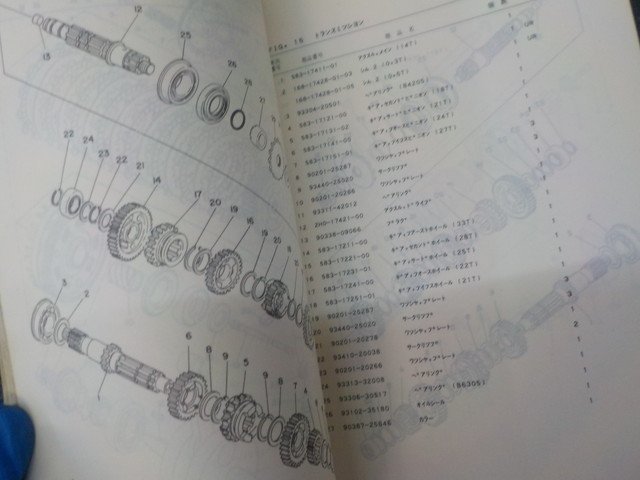 FIG. 16 トランスミッション
部品番号 部品名 備考
583-17411-01 アクスル,メイン (14T) 1
2 168-17428-01-03 シム.2 (0.3T) 1 UR
168-17428-01-05 シム.2 (0.5T) 1 UR
3 93304-20501 ベアリング (6420S) 1
583-17121-00 ギア,セカンドピニオン (18T) 1
583-17131-02 ギア,サードピニオン (21T) 1
583-17141-00 ギア,フオースピニオン (24T) 1
583-17151-01 ギア,フイフスピニオン (27T)
90201-25287 ワツシヤ,プレート
93440-25020 サークリツプ
90201-20266 ワツシヤ,プレート
93311-42012 ベアリング
2H0-17421-00 アクスル,ドライブ
90338-09066 プラグ
583-17211-00 ギア,フアーストホイル (33T)
583-17221-00 ギア,セカンドホイル (28T)
583-17231-01 ギア,サードホイル (25T)
583-17241-00 ギア,フオースホイル (22T)
583-17251-01 ギア,フイフスホイル (21T)
19 90201-25287 ワツシヤ,プレート 3
20 93440-25020 サークリツプ 3
21 90201-20278 ワツシヤ,プレート 1
22 93410-20038 サークリツプ 2
23 90201-20266 ワツシヤ,プレート 1
24 93313-32008 ベアリング 1
25 93306-30517 ベアリング (6630S) 1
26 93102-35180 オイルシール 1
90387-25646 カラー 1
12
13
25
26
28
21
22
24
23
22
21
14
17
20
19
16
19
20
18
3
2
1
6
8
9
5
9
8
7
4